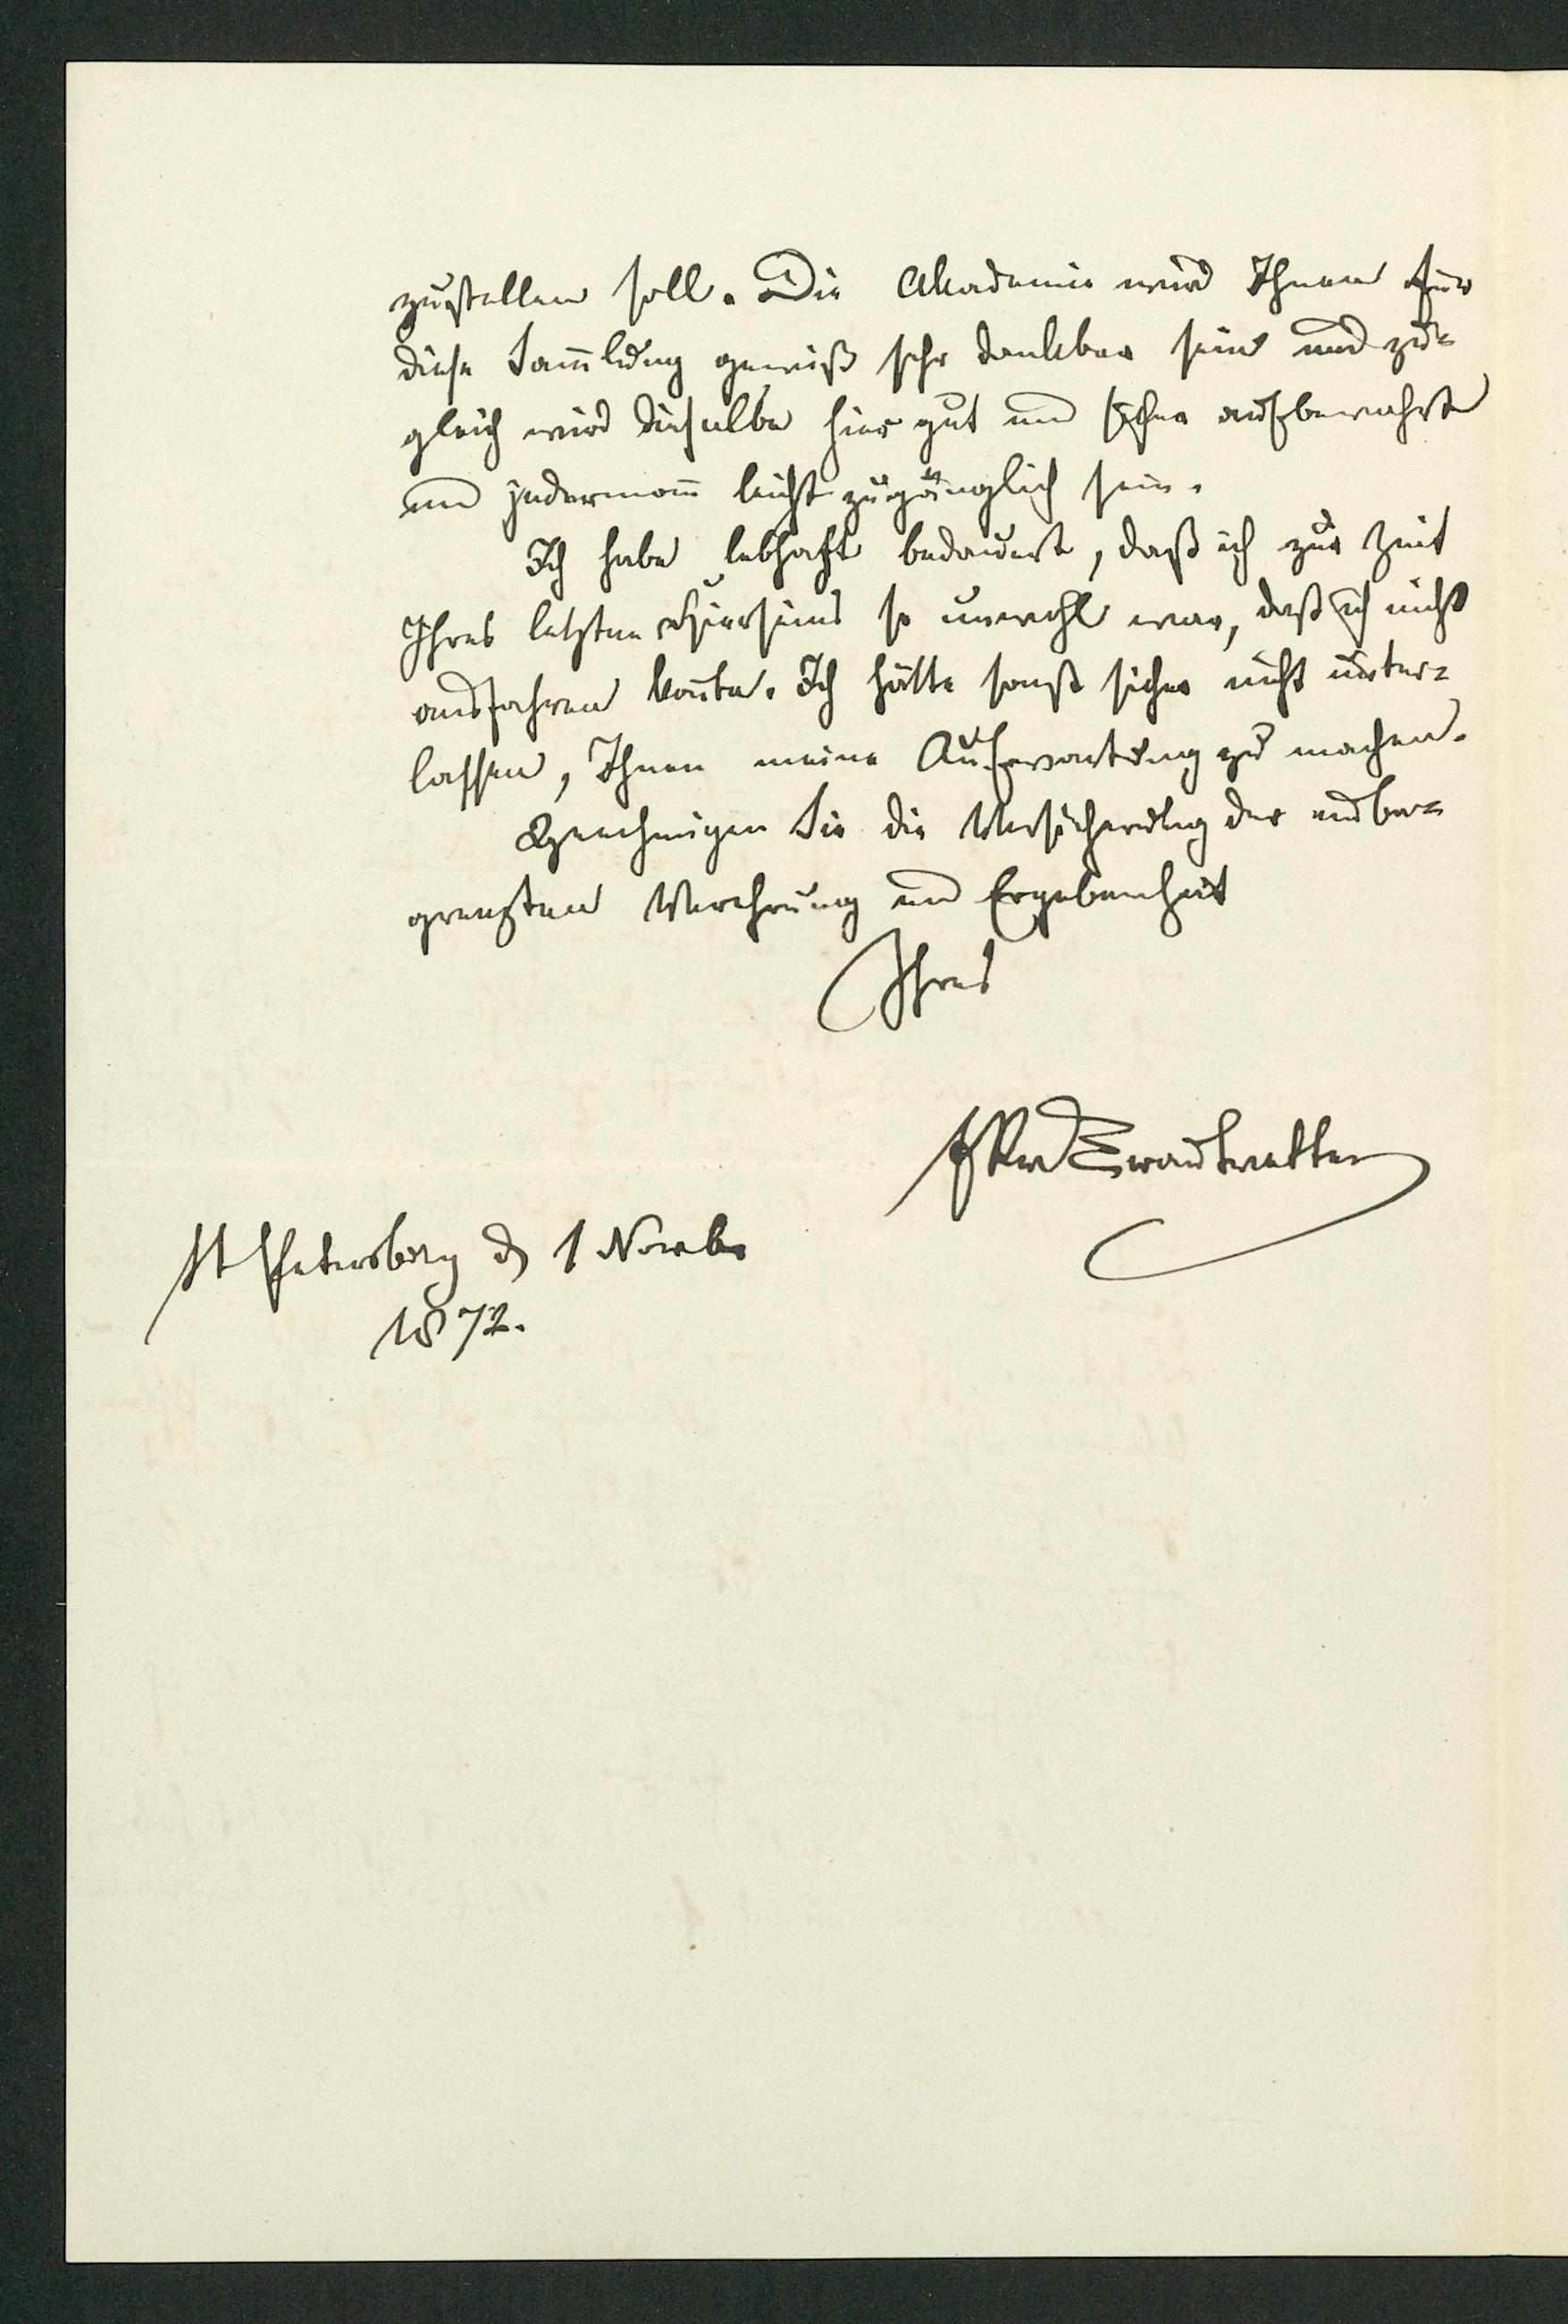 zustellen soll. Die Akademie wird Ihnen für
diese Sam̄lung gewiß sehr dankbar sein und zu=
gleich wird dieselbe hier gut und sicher aufbewahrt
und jederman̄ leicht zugänglich sein.
Ich habe lebhaft bedauert, daß ich zur Zeit
Ihres letzten Hierseins so unwohl war, daß ich nicht
ausfahren kon̄te. Ich hätte sonst sicher nicht unter=
lassen, Ihnen meine Aufwartung zu machen.
Genehmigen Sie die Versicherung der unbe=
grenzten Verehrung und Ergebenheit
Ihres
Trautvetter
St Petersburg d 1 Novebr
1872.